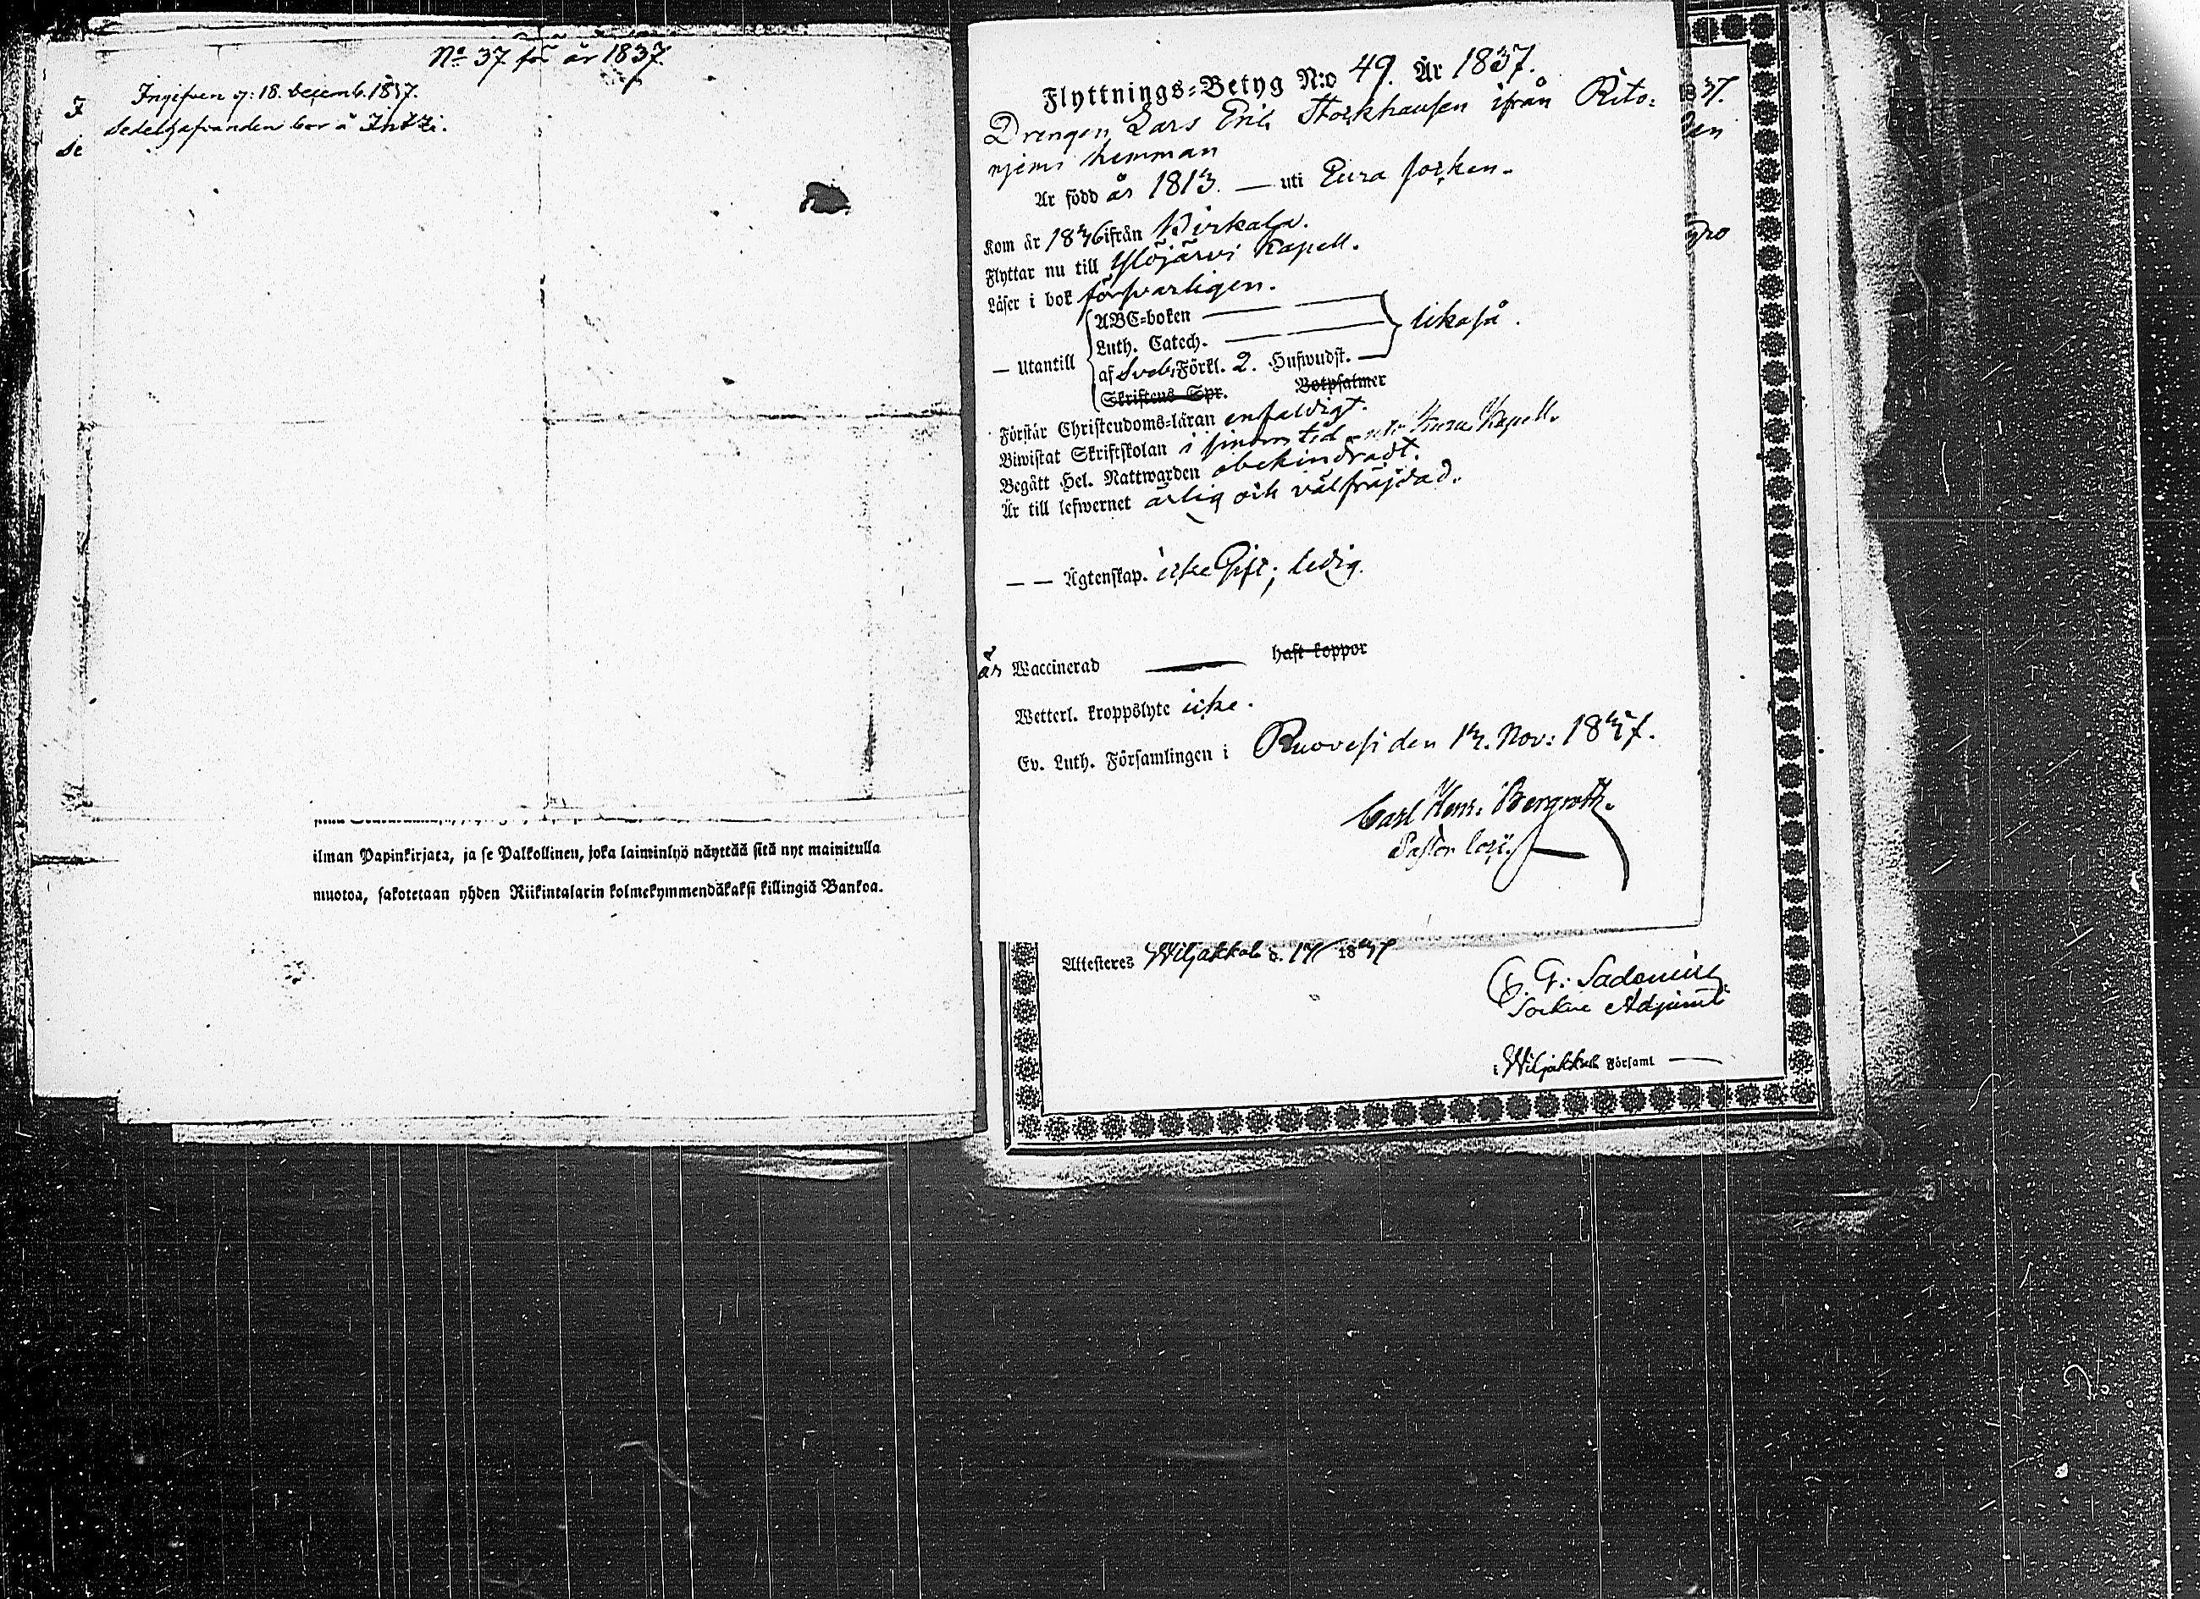 No 37 för år 1837.
Ingifven d: 18. Decemb. 1837.
Sedelhafvanden bor å Intti.
ilman Papinkirjata, ja se Palkollinen, joka laiminlyö näyttää sitä nyt mainitulla
muotoa, sakotetaan yhden Riikintalarin kolmekymmendäkaksi killingiä Bankoa.
Flyttnings-Betyg N:o 49. År 1837.
Drengen Lars Erik Stockhausen ifrån Rito-
njemi hemman
Är född år 1813. — uti Eura socken.
Kom år 1836 ifrån Birkala.
Flyttar nu till Ylöjärvi Kapell.
Läser i bok försvarligen.
— Utantill
ABC-boken —
Luth. Catech. —
af Sveb. Förkl. 2. Hufwudst. —
likaså.
Skriftens Spr. Botpsalmer
Förstår Christendoms-läran enfaldigt.
Biwistat Skriftskolan i sinom tid uti Kuru Kapell.
Begått Hel. Nattwarden obehindradt.
Är till lefwernet ärlig och välfräjdad.
— — Ägtenskap. icke Gift; ledig.
är Waccinerad — haft koppor
Wetterl. kroppslyte icke.
Ev. Luth. Församlingen i Ruovesi den 13. Nov: 1837.
Carl Henr: Bergroth.
Pastor
37.
Attesteres Wiljakkala d. 18
Sockne Adjunct
i Wiljakkala Församl —